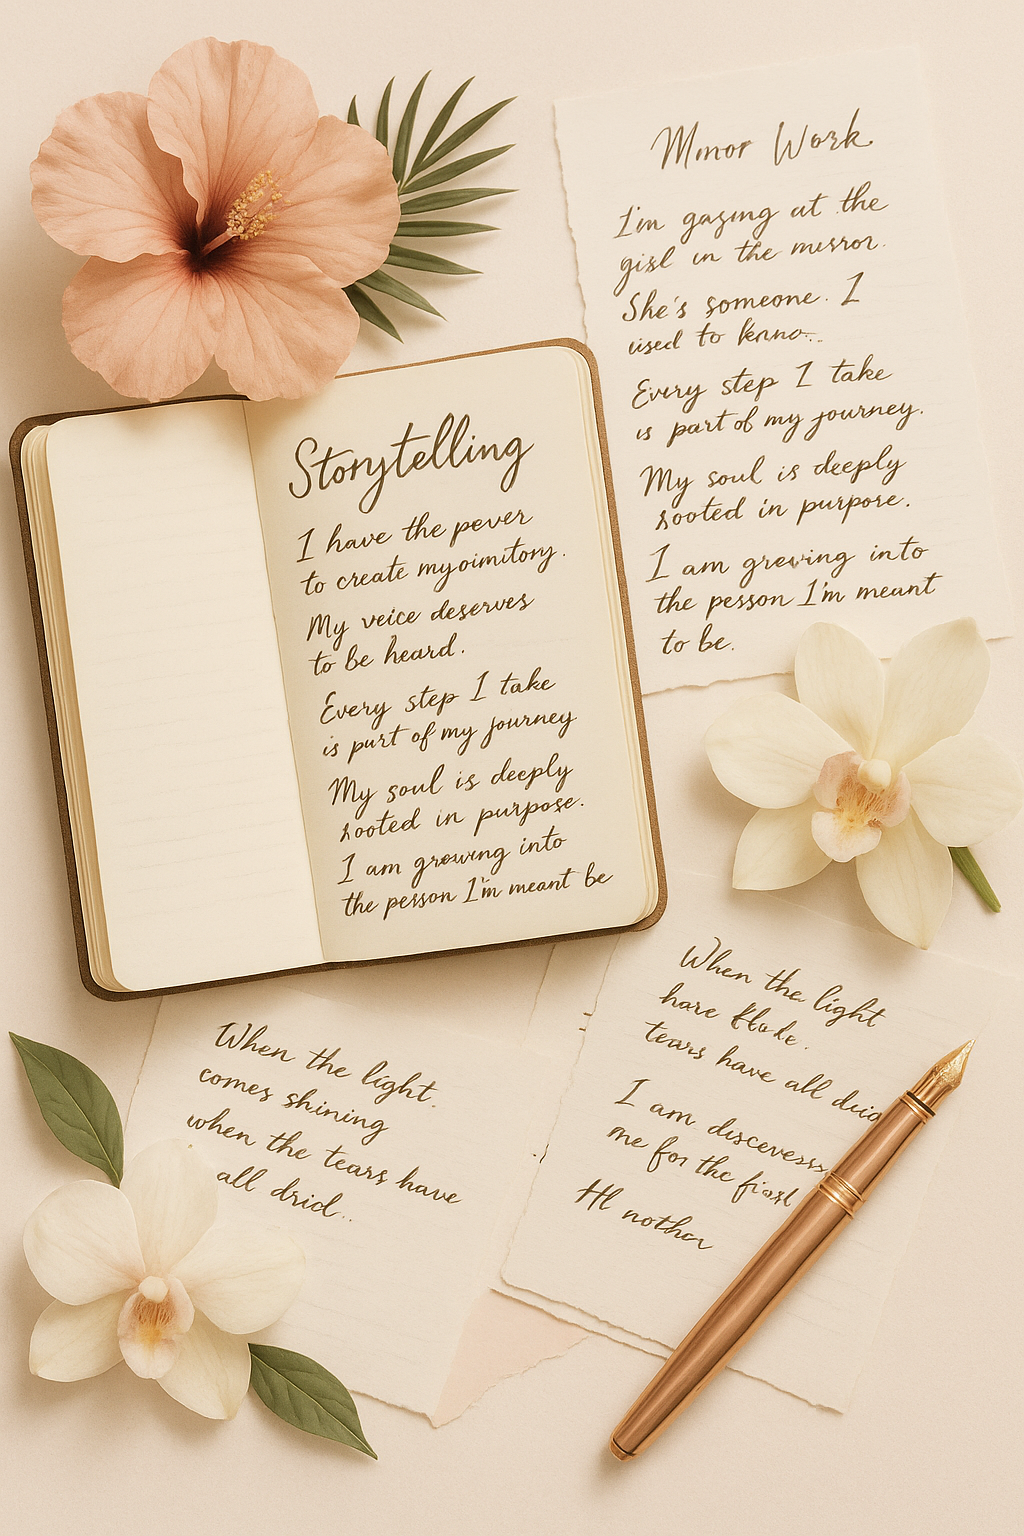 Storytelling
I have the pever
to create myoimitory.
My veice deserves
to be heard.
Every step I take
is purt of my journey
My soul is deeply
rooted in purpose.
I am growing into
the person I'm meant be
Minor Work
I'm gazing at the
girl in the mirror.
She's someone. I
used to knno...
Every step I take
is part of my journey.
My soul is deeply
rooted in purpore.
I am greving into
the person I'm meant
to be.
When the light.
comes shining
when the tears have
all drid...
When the light
hare
tears have all
I am
me for the
nothen